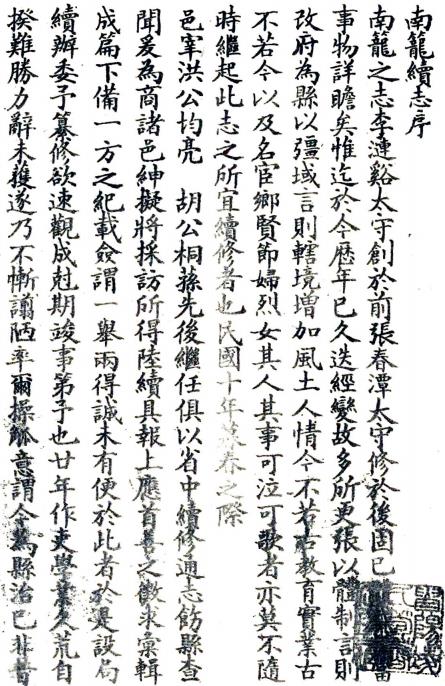 南籠續志序
南籠之志李漣谿太守創於前張春潭太守修於後固已
事物詳贍矣惟迄於今歷年已久迭經變故多所更張以體制言則
改府為縣以彊域言則轄境增加風土人情今不若古教育實業古
不若今以及名宦鄉賢節婦烈女其人其事可泣可歌者亦莫不隨
時繼起此志之所宜續修者也民國十年春之際
邑宰洪公均亮　胡公桐蓀先後繼任俱以省中續修通志飭縣查
聞爰為商諸邑紳擬將採訪所得陸續具報上應首善之徵求彙輯
成篇下備一方之紀載僉謂一舉兩得誠未有便於此者於是設局
續辦委予纂修欲速觀成尅期竣事第予也廿年作吏學業久荒自
揆難勝力辭未獲遂乃不慚謭陋率爾操觚意謂今為縣治已非昔